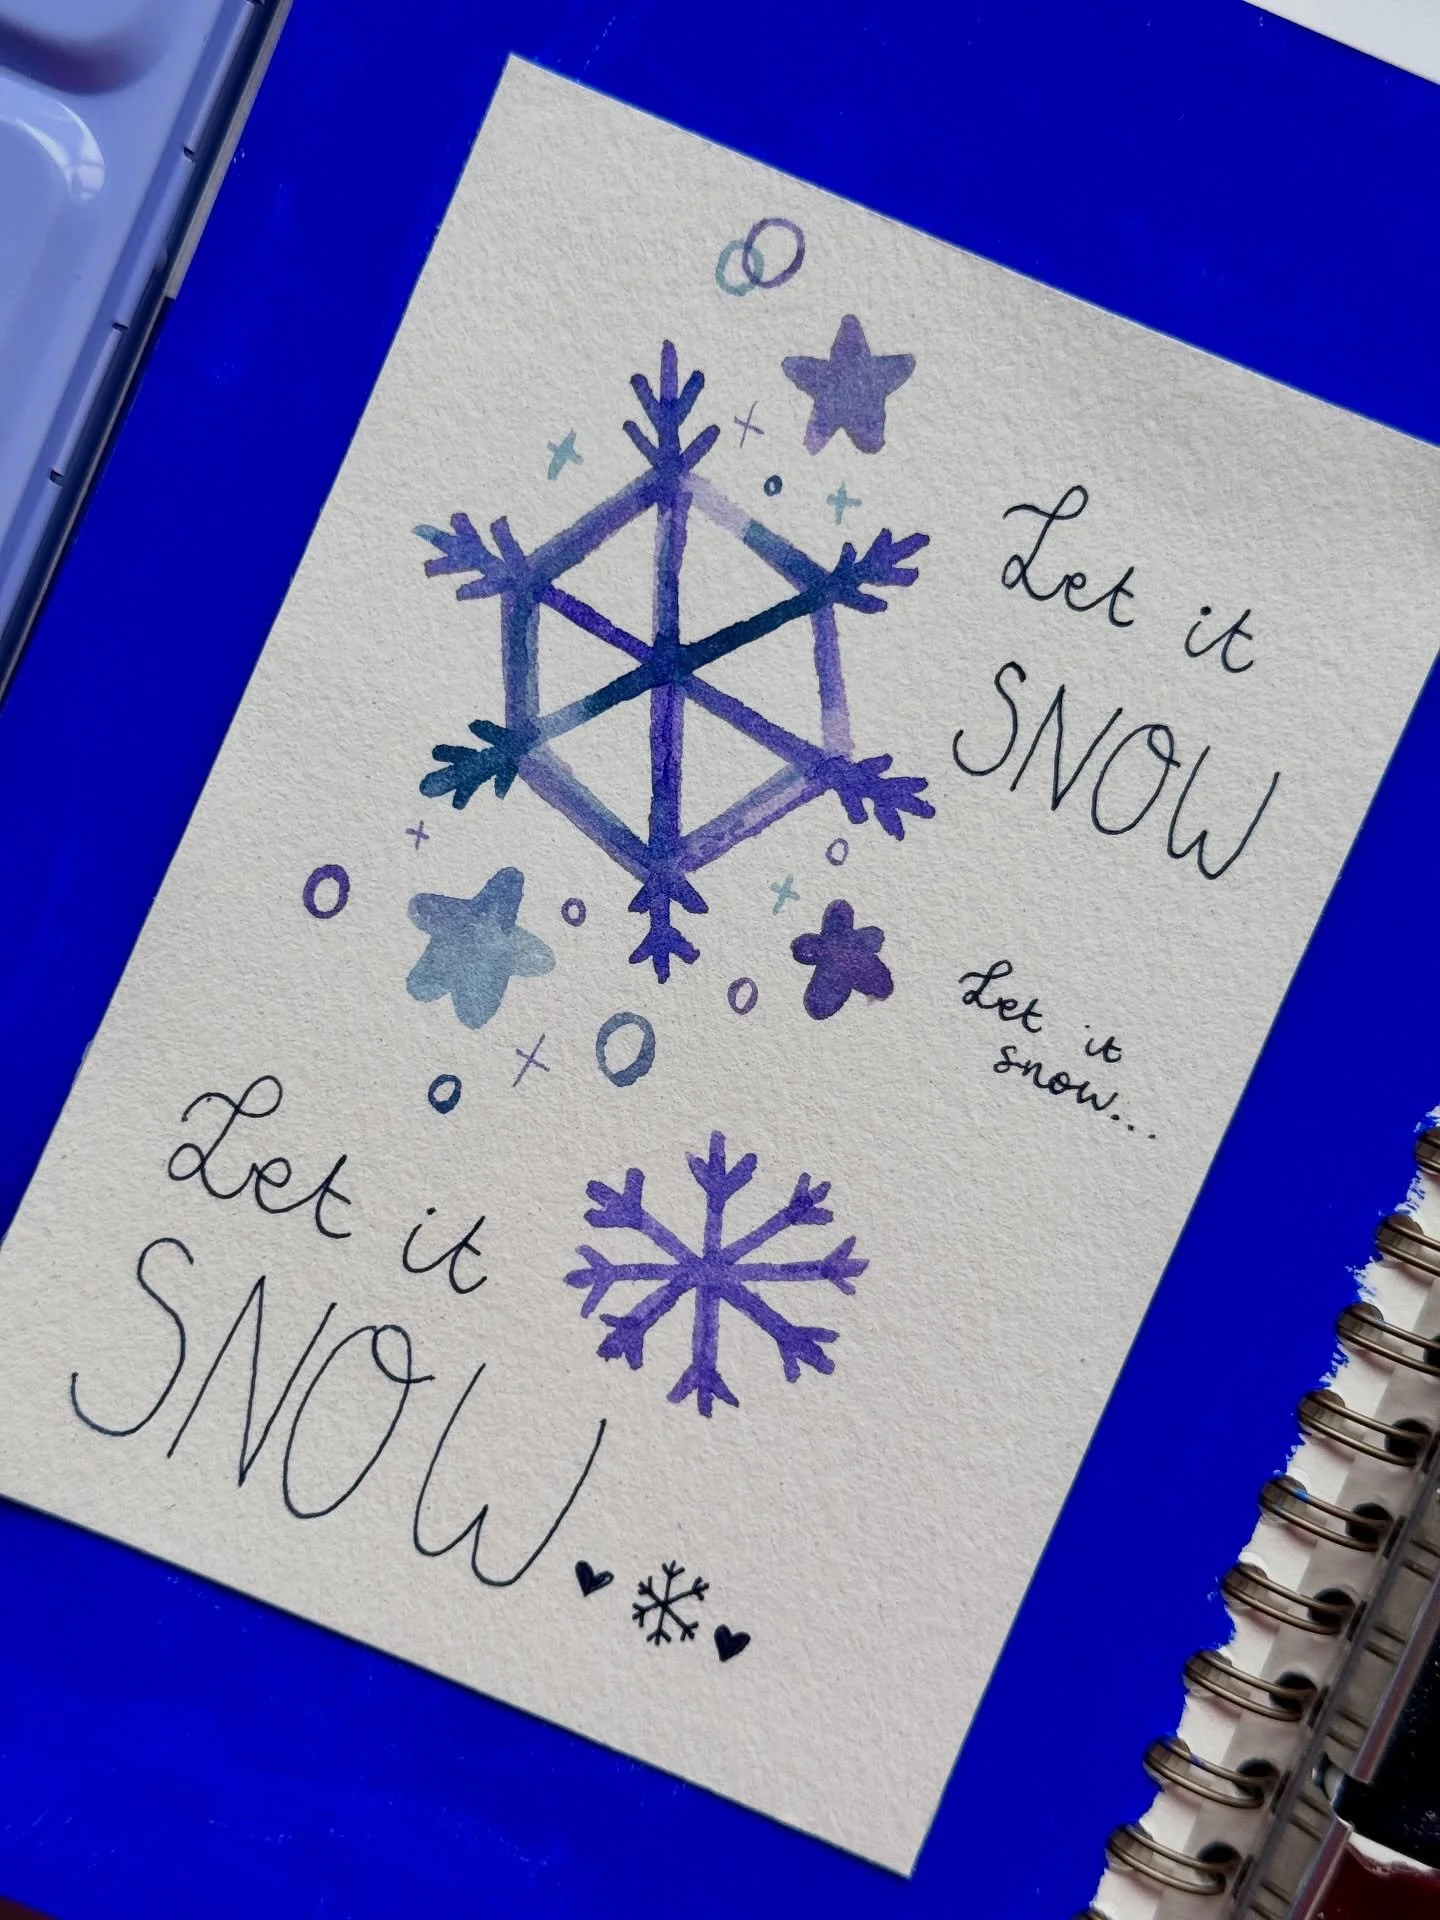 Let it
SNOW
Let it
snow...
Let it
SNOW